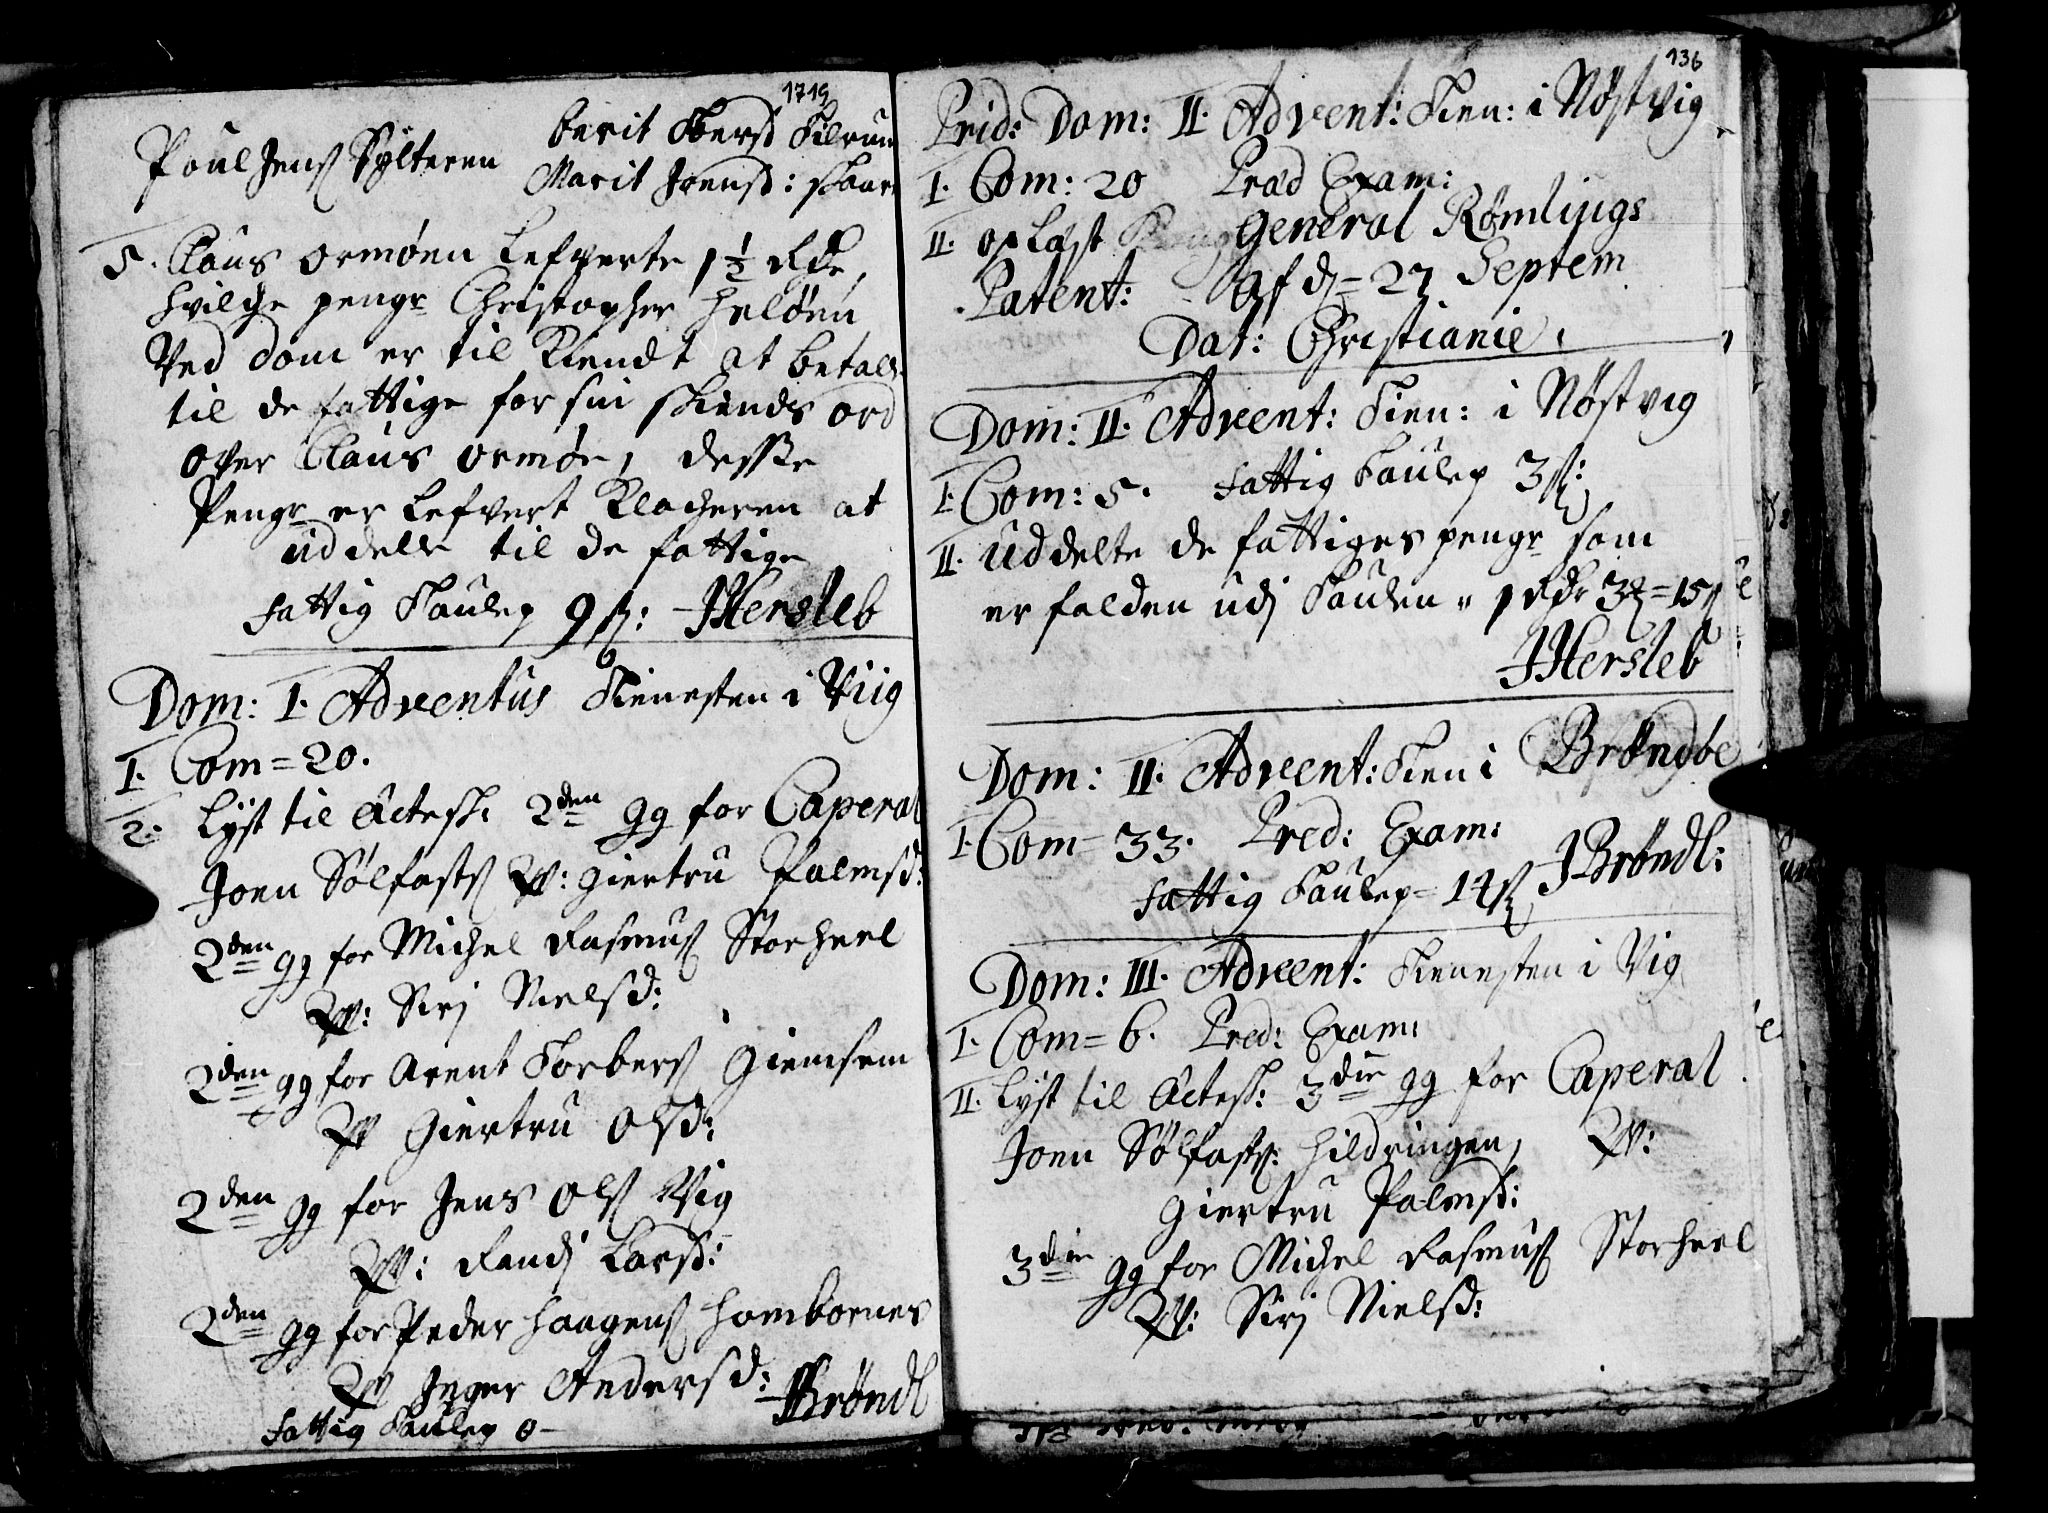 1719
Poul Jens Sylteren berit Ibersd Kilrum
Marit Jrensd: skaar
5. Claus ormøen Lefverte 1½ Rdr,
hvilche penge Christopher Heløen
Ved dom er til Kiendt at betale
til de fattige for sin skiends ord
over Claus ormøe, desse
Penge er Lefvert Klocheren at
uddelle til de fattige
fattig Taulen 9 s: JHersleb
Dom: I. Adventus Tienesten i Viig
I. Com = 20.
2. Lyst til Ectesk: 2den gg for Caperal
Joen Sølfasts og: giertru Palmsd:
2den gg for Michel Rasmus Storheel
og: Siri Nielsd:
2den gg for Arent Torbers Giemsem
og Giertru Olsd:
2den gg for Jens Ols Viig
og: Randj Larsd:
2den gg for Peder haagens hombornes
og Inger Andersd: JBrøndl
fattig Taulen 0 -
136
Prid: Dom: II. Advent: Tien: i Nøstvig
I. Com: 20 Præd Exam:
II. opLæst General Rømlings
Patent: af d= 27 Septem
Dat: Christianie.
Dom: II. Advent: Tien: i Nøstvig
I. Com: 5. fattig Taulen 3 s:
II. Uddelte de fattiges penge som
er falden udj Taulen " 1 Rdr 3 = 15 s
JHersleb
Dom: II. Advent: Tien i Brøndøe
I. Com = 33. Pred: Exam:
fattig Taulen = 14 s JBrøndl:
Dom: III. Advent: Tienesten i Vig
I. Com = 6. Pred: Exam:
II. Lyst til Ectesk: 3die gg for Caperal
Joen Sølfasts: hildringen, og:
Giertru Palmsd:
3die gg for Michel Rasmus Storheel
og: Siri Nielsd: